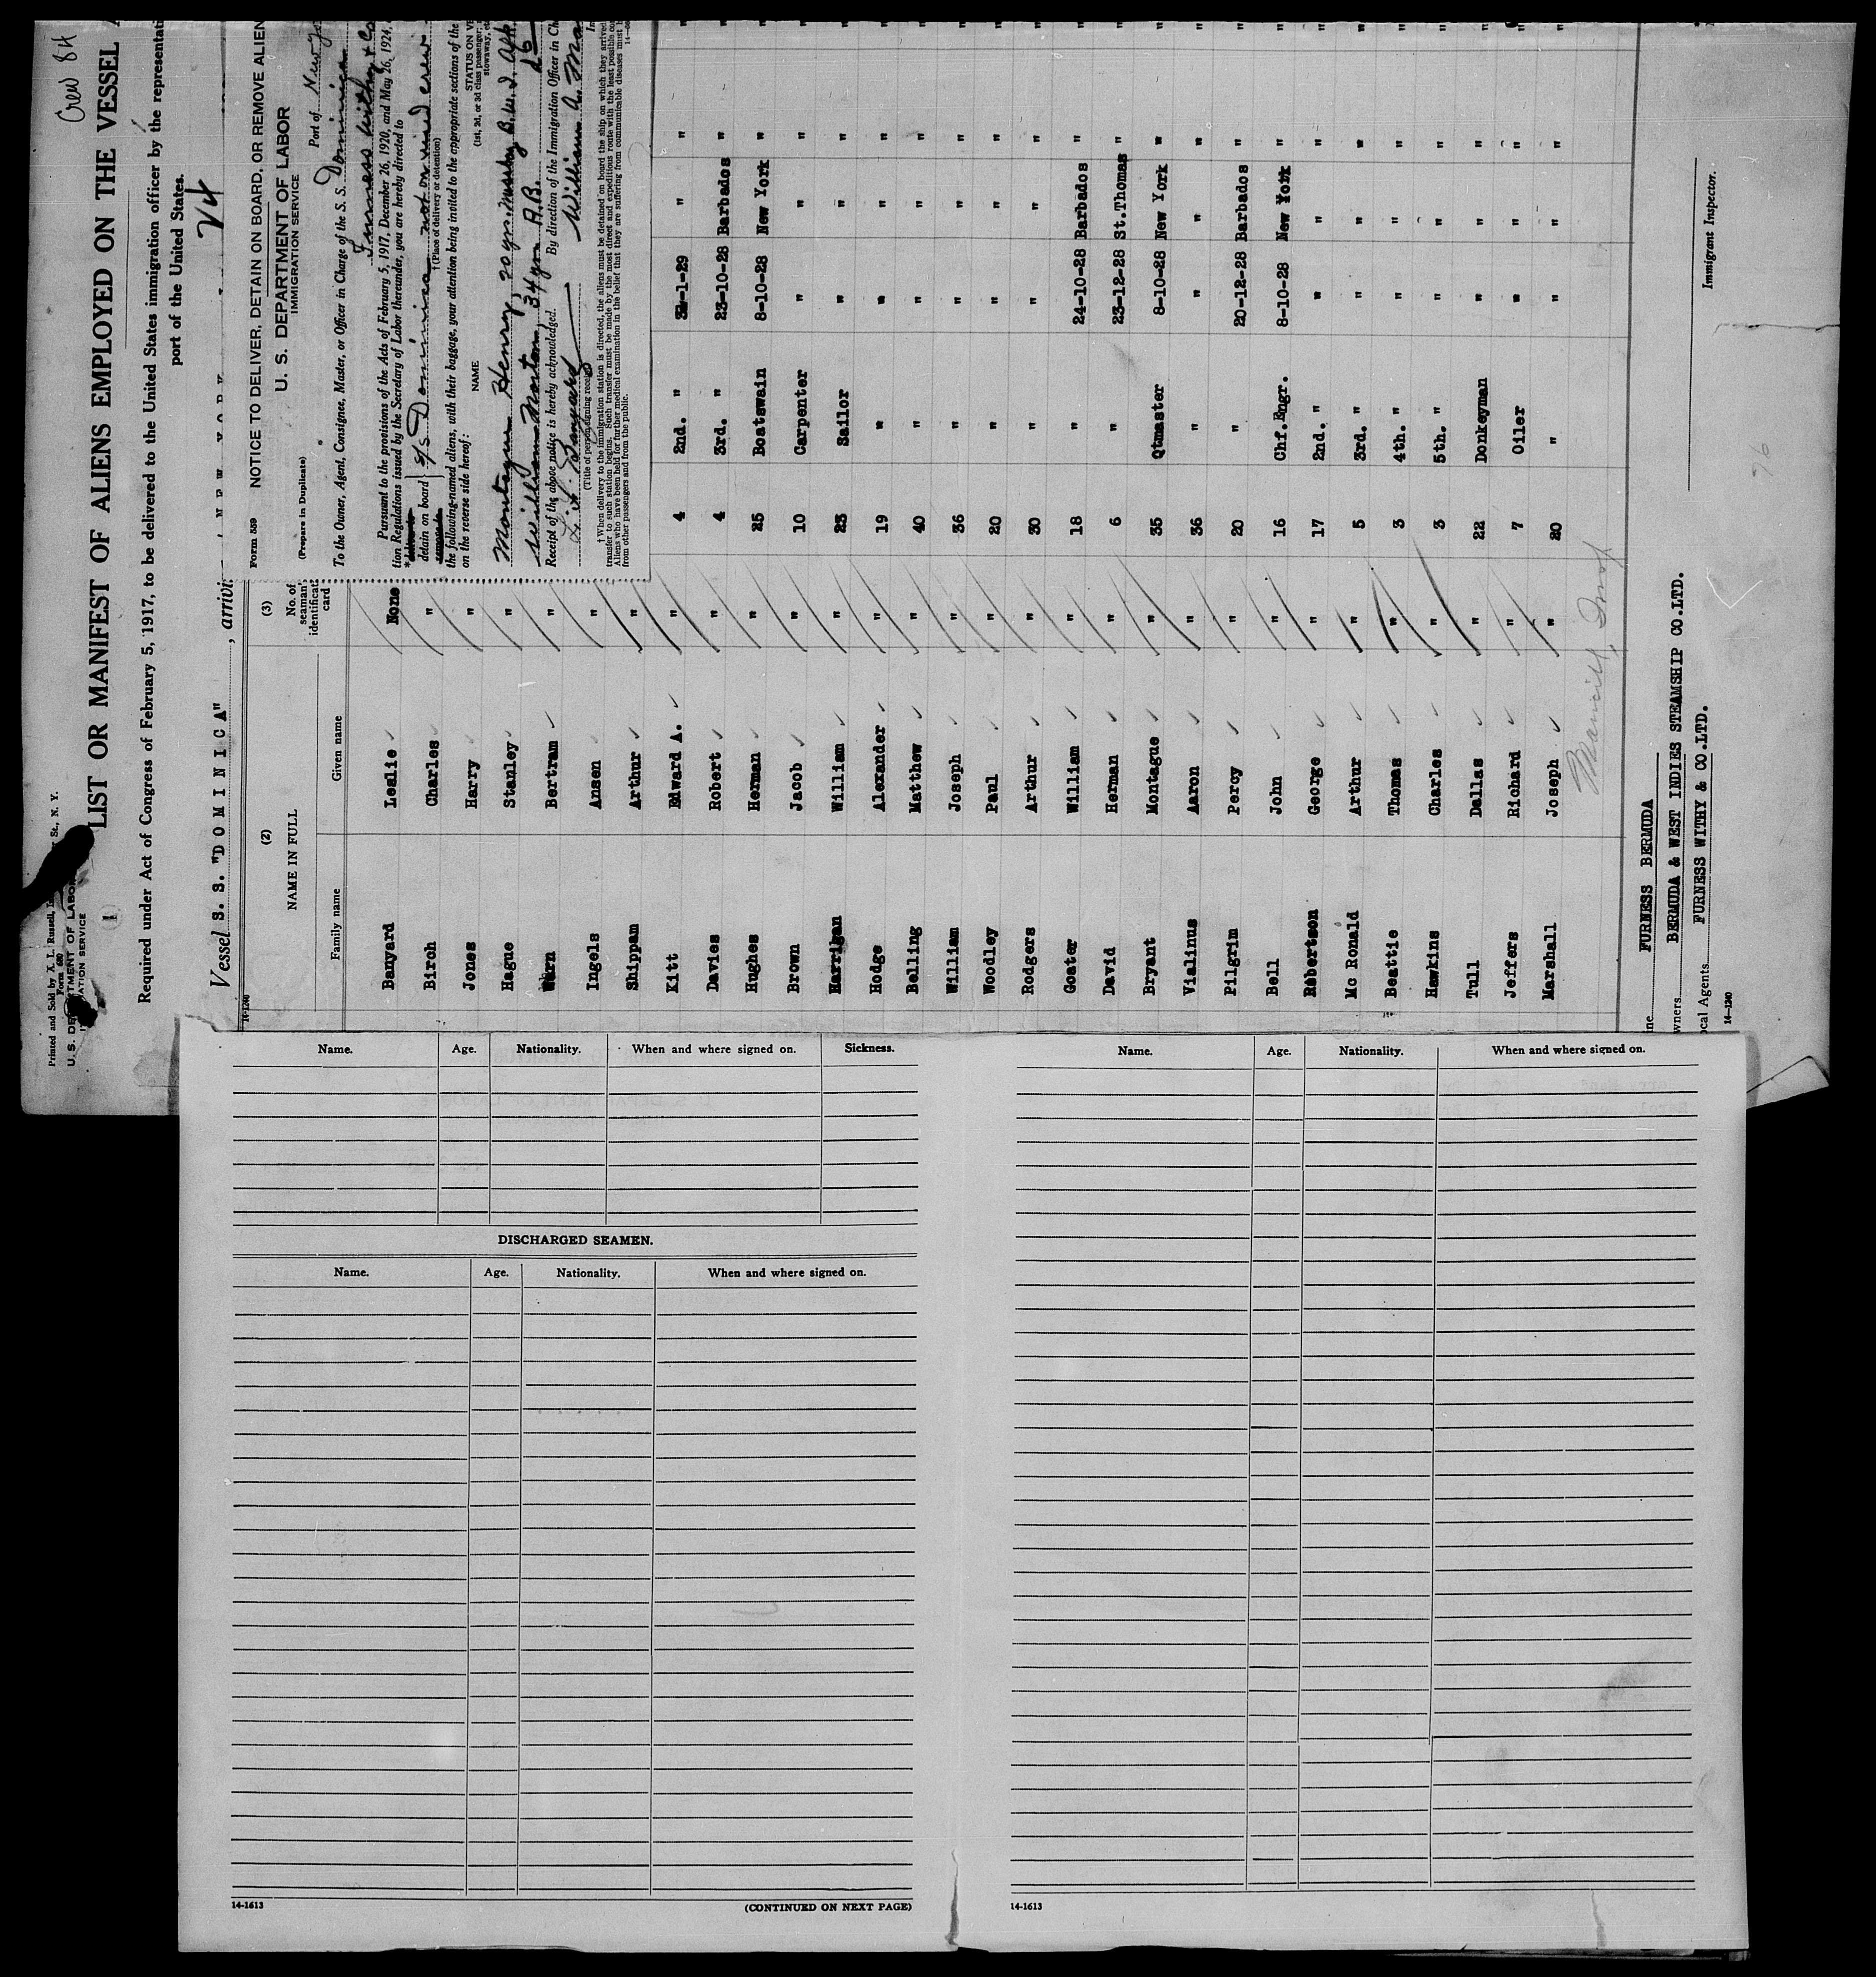 Crew 84
Printed and Sold by X. L. Russell,
St., N. Y.
Form 680
U. S. DEPARTMENT OF LABOR
IMMIGRATION SERVICE
LIST OR MANIFEST OF ALIENS EMPLOYED ON THE VESSEL
Required under Act of Congress of February 5, 1917, to be delivered to the United States immigration officer by the
port of the United States.
Vessel S. S. "DOMINICA" , arrivi
14-1240
(2) (3)
NAME IN FULL No. of seaman's identification card
Family name Given name
Banyard Leslie None
Birch Charles "
Jones Harry "
Hague Stanley "
Warn Bertram "
Ingels Ansen "
Shippam Arthur "
Kitt Edward A. " 4 2nd. " -1-29 " "
Davies Robert " 4 3rd. " 23-10-28 Barbados "
Hughes Herman " 25 Boatswain 8-10-28 New York "
Brown Jacob " 10 Carpenter " " "
Harrigan William " 23 Sailor " " "
Hodge Alexander " 19 " " " "
Belling Matthew " 40 " " " "
William Joseph " 36 " " " "
Woodley Paul " 20 " " " "
Rodgers Arthur " 30 " " " "
Goater William " 18 " 24-10-28 Barbados "
David Herman " 6 " 23-12-28 St.Thomas "
Bryant Montague " 35 Qtmaster 8-10-28 New York "
Vialinus Aaron " 36 " " " "
Pilgrim Percy " 20 " 20-12-28 Barbados "
Bell John " 16 Chf.Engr. 8-10-28 New York "
Robertson George " 17 2nd. " " " "
Mc Ronald Arthur " 5 3rd. " " " "
Beattie Thomas " 3 4th. " " " "
Hawkins Charles " 3 5th. " " " "
Tull Dallas " 22 Donkeyman " " "
Jeffers Richard " 7 Oiler " " "
Marshall Joseph " 20 " " " "
FURNESS BERMUDA
BERMUDA & WEST INDIES STEAMSHIP CO.LTD.
FURNESS WITHY & CO.LTD.
14-1240
Immigrant Inspector.
96
Form 559 NOTICE TO DELIVER, DETAIN ON BOARD, OR REMOVE ALIEN
U. S. DEPARTMENT OF LABOR
IMMIGRATION SERVICE
(Prepare in Duplicate) Port of New
To the Owner, Agent, Consignee, Master, or Officer in Charge of the S. S. Dominica
Furness Withy & Co
Pursuant to the provisions of the Acts of February 5, 1917, December 26, 1920, and May 26, 1924,
tion Regulations issued by the Secretary of Labor thereunder, you are hereby directed to
detain on board s/s Dominica not on visaed crew
† (Place of delivery or detention)
the following-named aliens, with their baggage, your attention being invited to the appropriate sections of the
on the reverse side hereof:
NAME STATUS ON VE
(1st, 2d, or 3d class passenger,
stowaway, etc
Montague Henry, 20 yrs.
William Norton, 34 yrs A.B.
Receipt of the above notice is hereby acknowledged. By direction of the Immigration Officer in Ch
L. H. Banyard William A.
(Title of person signing receipt)
† When delivery to the immigration station is directed, the aliens must be detained on board the ship on which they arrived
transfer to such station begins. Such transfer must be made by the most direct and expeditious route with the least possible
Aliens who have been held for further medical examination in the belief that they are suffering from communicable diseases must
from other passengers and from the public.
Name. Age. Nationality. When and where signed on. Sickness.
DISCHARGED SEAMEN.
Name. Age. Nationality. When and where signed on.
14-1613 (CONTINUED ON NEXT PAGE)
Name. Age. Nationality. When and where signed on.
14-1613